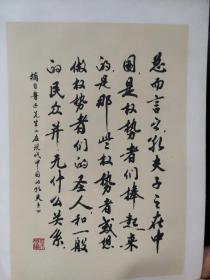 总而言之孔夫子之在中
国是权势者们捧起来
的是那些权势者或想
做权势者们的圣人和一般
的民众并无什么关系
摘自鲁迅先生《在现代中国的孔夫子》